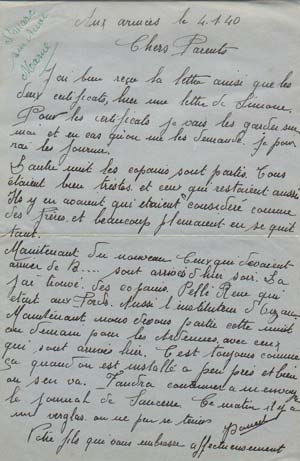 Aux armées le 4.1.40
Chers Parents
J'ai bien reçu la lettre ainsi que les
deux certificats, hier une lettre de Simone.
Pour les certificats je vais les garder sur
moi et en cas qu'on me les demande je pour
rai les fournir.
L'autre nuit les copains sont partis. Tous
étaient bien tristes, et ceux qui restaient aussi
Ils y en avaient qui étaient considéré comme
des frères, et beaucoup pleuraient en se quit
tant.
Maintenant du nouveau Ceux qui devaient
arriver de B.... sont arrivés d'hier soir. La
j'ai trouvé des copains. Pellé René qui
était aux Aussi l'instituteur d'
Maintenant nous devons partir cette nuit
ou demain pour les Ardennes, avec ceux
qui sont arrivés hier. C'est toujours comme
ça quand on est installé a peu près et bien
on s'en va. Faudra continuer a m'envoyer
le journal de Sancerre. Ce matin il y a
un verglas on ne peu se tenir
Votre fils qui vous embrasse affectueusement